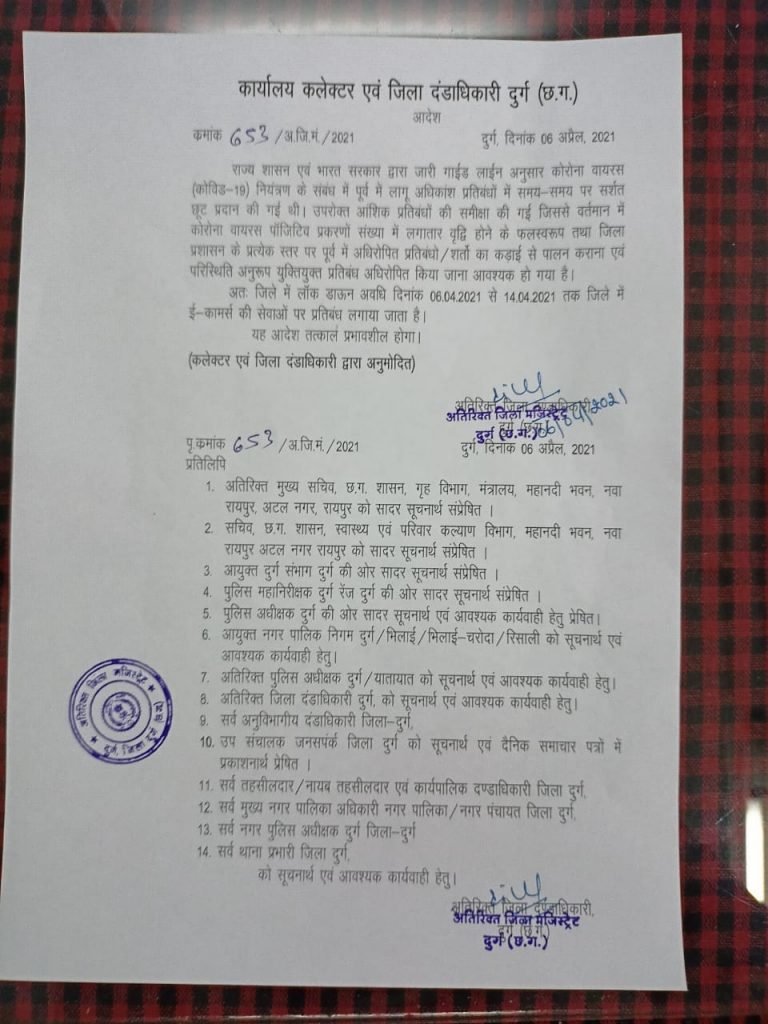 कार्यालय कलेक्टर एवं जिला दंडाधिकारी दुर्ग (छ.ग.)
आदेश
कमांक 653 /अ.जि.मं./2021 दुर्ग, दिनांक 06 अप्रैल, 2021
राज्य शासन एवं भारत सरकार द्वारा जारी गाईड लाईन अनुसार कोरोना वायरस
(कोविड-19) नियंत्रण के संबंध में पूर्व में लागू अधिकांश प्रतिबंधों में समय-समय पर सर्शत
छूट प्रदान की गई थी। उपरोक्त आंशिक प्रतिबंधों की समीक्षा की गई जिससे वर्तमान में
कोरोना वायरस पॉजिटिव प्रकरणों संख्या में लगातार वृद्धि होने के फलस्वरूप तथा जिला
प्रशासन के प्रत्येक स्तर पर पूर्व में अधिरोपित प्रतिबंधो/शर्तो का कड़ाई से पालन कराना एवं
परिस्थिति अनुरूप युक्तियुक्त प्रतिबंध अधिरोपित किया जाना आवश्यक हो गया है।
अतः जिले में लॉक डाऊन अवधि दिनांक 06.04.2021 से 14.04.2021 तक जिले में
ई-कामर्स की सेवाओं पर प्रतिबंध लगाया जाता है।
यह आदेश तत्काल प्रभावशील होगा।
(कलेक्टर एवं जिला दंडाधिकारी द्वारा अनुमोदित)
अतिरिक्त जिला दण्डाधिकारी
अतिरिक्त जिला मजिस्ट्रेट
दुर्ग (छ.ग.) 06/04/2021
पृ.कमांक 653 /अ.जि.मं./2021 दुर्ग, दिनांक 06 अप्रैल, 2021
प्रतिलिपि
1. अतिरिक्त मुख्य सचिव, छ.ग. शासन, गृह विभाग, मंत्रालय, महानदी भवन, नवा
रायपुर, अटल नगर, रायपुर को सादर सूचनार्थ संप्रेषित ।
2. सचिव, छ.ग. शासन, स्वास्थ्य एवं परिवार कल्याण विभाग, महानदी भवन, नवा
रायपुर अटल नगर रायपुर को सादर सूचनार्थ संप्रेषित ।
3. आयुक्त दुर्ग संभाग दुर्ग की ओर सादर सूचनार्थ संप्रेषित ।
4. पुलिस महानिरीक्षक दुर्ग रेंज दुर्ग की ओर सादर सूचनार्थ संप्रेषित ।
5. पुलिस अधीक्षक दुर्ग की ओर सादर सूचनार्थ एवं आवश्यक कार्यवाही हेतु प्रेषित।
6. आयुक्त नगर पालिक निगम दुर्ग/भिलाई/भिलाई-चरोदा/रिसाली को सूचनार्थ एवं
आवश्यक कार्यवाही हेतु।
7. अतिरिक्त पुलिस अधीक्षक दुर्ग/यातायात को सूचनार्थ एवं आवश्यक कार्यवाही हेतु।
8. अतिरिक्त जिला दंडाधिकारी दुर्ग, को सूचनार्थ एवं आवश्यक कार्यवाही हेतु।
9. सर्व अनुविभागीय दंडाधिकारी जिला-दुर्ग,
10. उप संचालक जनसपंर्क जिला दुर्ग को सूचनार्थ एवं दैनिक समाचार पत्रों में
प्रकाशनार्थ प्रेषित ।
11. सर्व तहसीलदार/नायब तहसीलदार एवं कार्यपालिक दण्डाधिकारी जिला दुर्ग,
12. सर्व मुख्य नगर पालिका अधिकारी नगर पालिका/नगर पंचायत जिला दुर्ग,
13. सर्व नगर पुलिस अधीक्षक दुर्ग जिला-दुर्ग
14. सर्व थाना प्रभारी जिला दुर्ग,
को सूचनार्थ एवं आवश्यक कार्यवाही हेतु।
अतिरिक्त जिला मजिस्ट्रेट
दुर्ग, जिला दुर्ग
अतिरिक्त जिला दण्डाधिकारी,
अतिरिक्त जिला मजिस्ट्रेट
दुर्ग (छ.ग.)